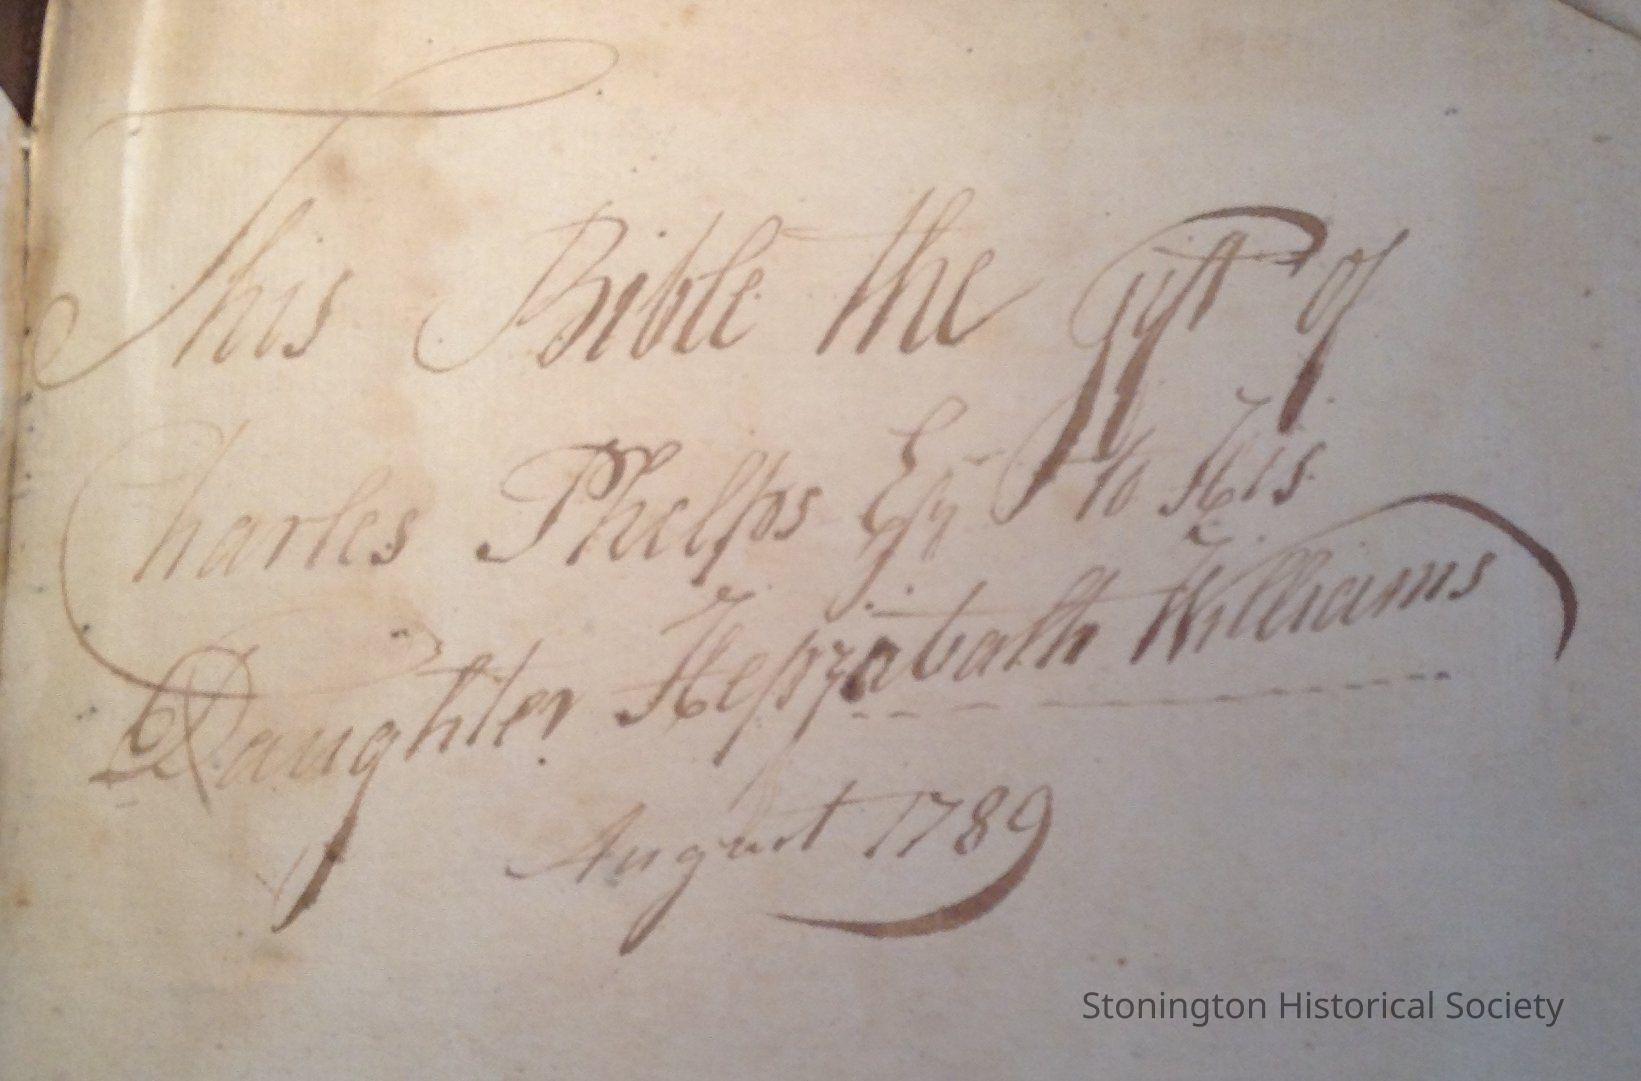 This Bible the Gift of
Charles Phelps Esq to His
Daughter Hepzabath Williams
August 1789
Stonington Historical Society